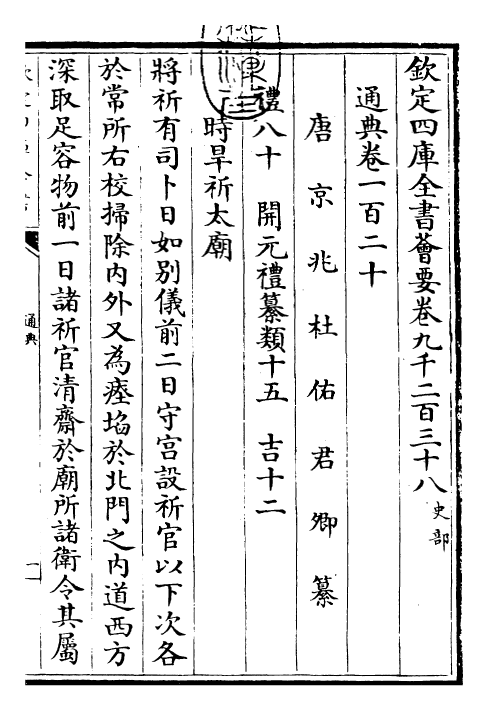 欽定四庫全書薈要卷九千二百三十八史部
通典卷一百二十
唐京兆杜佑君卿纂
禮八十 開元禮纂類十五 吉十二
時旱祈太廟
將祈有司卜日如别儀前二日守宫設祈官以下次各
於常所右校掃除内外又為瘞埳於北門之内道西方
深取足容物前一日諸祈官清齋於廟所諸衛令其屬
通典
一